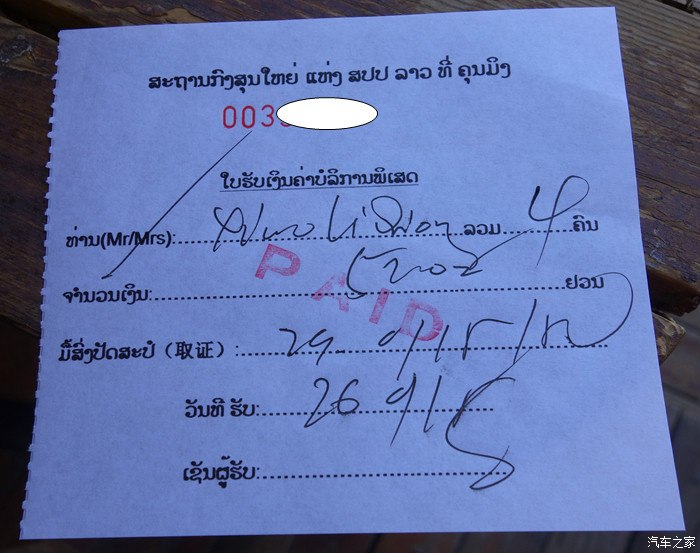 ສະຖານກົງສຸນໃຫຍ່ ແຫ່ງ ສປປ ລາວ ທີ່ ຄຸນມິງ
003
ໃບຮັບເງິນຄ່າບໍລິການພິເສດ
ທ່ານ(Mr/Mrs): ລວມ 4 ຄົນ
PAID
ຈຳນວນເງິນ: ຢວນ
ມື້ສົ່ງປັດສະປໍ (取证) : 29
ວັນທີ ຮັບ: 26
ເຊັນຜູ້ຮັບ:
汽车之家